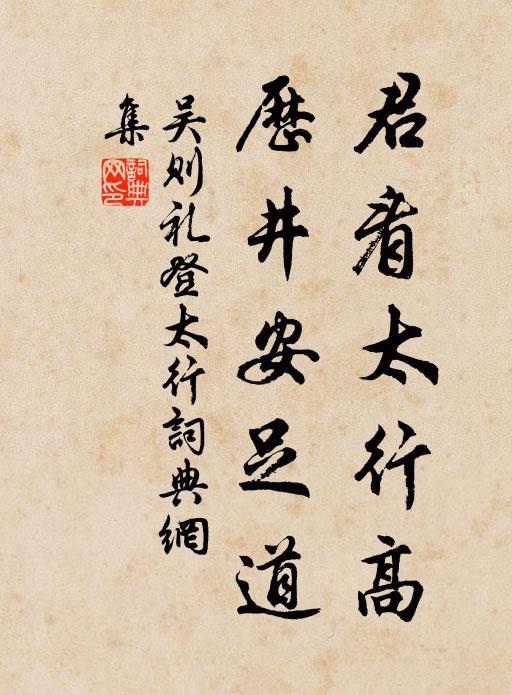 君看太行高
歷井安足道
吴则礼登太行詞典網
集
詞典
网印